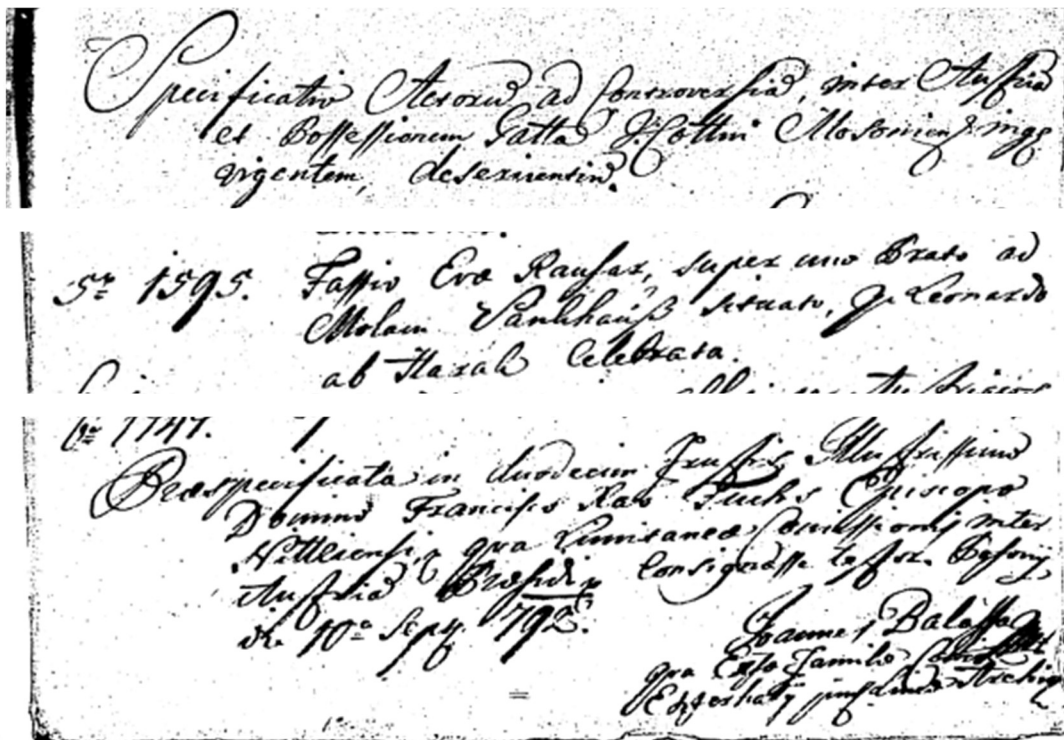 Specificatio Actorū ad Controversiā, inter Austriā
et Possessionem Gatta I. Cottui Mosonien. ingr.
vigentem, deservientiū.
5º 1595. Fassio Evæ Rauhax, super uno Prato ad
Molam Pankhauß situato, pr Leonardo
ab Harrah Celebrata.
6º 1747.
Præspecificata in duodecim Frustis Illustrissimo
Domino Francisco Xav Fuchs Episcopo
Nittriensi, qua Limitaneæ Comissionis inter
Austriā Præsidi Consignasse testor. Posonij
die 10ª Sept. 792.
Joannes Balássa
qua Exc. Familiæ Comit.
Eszterházy